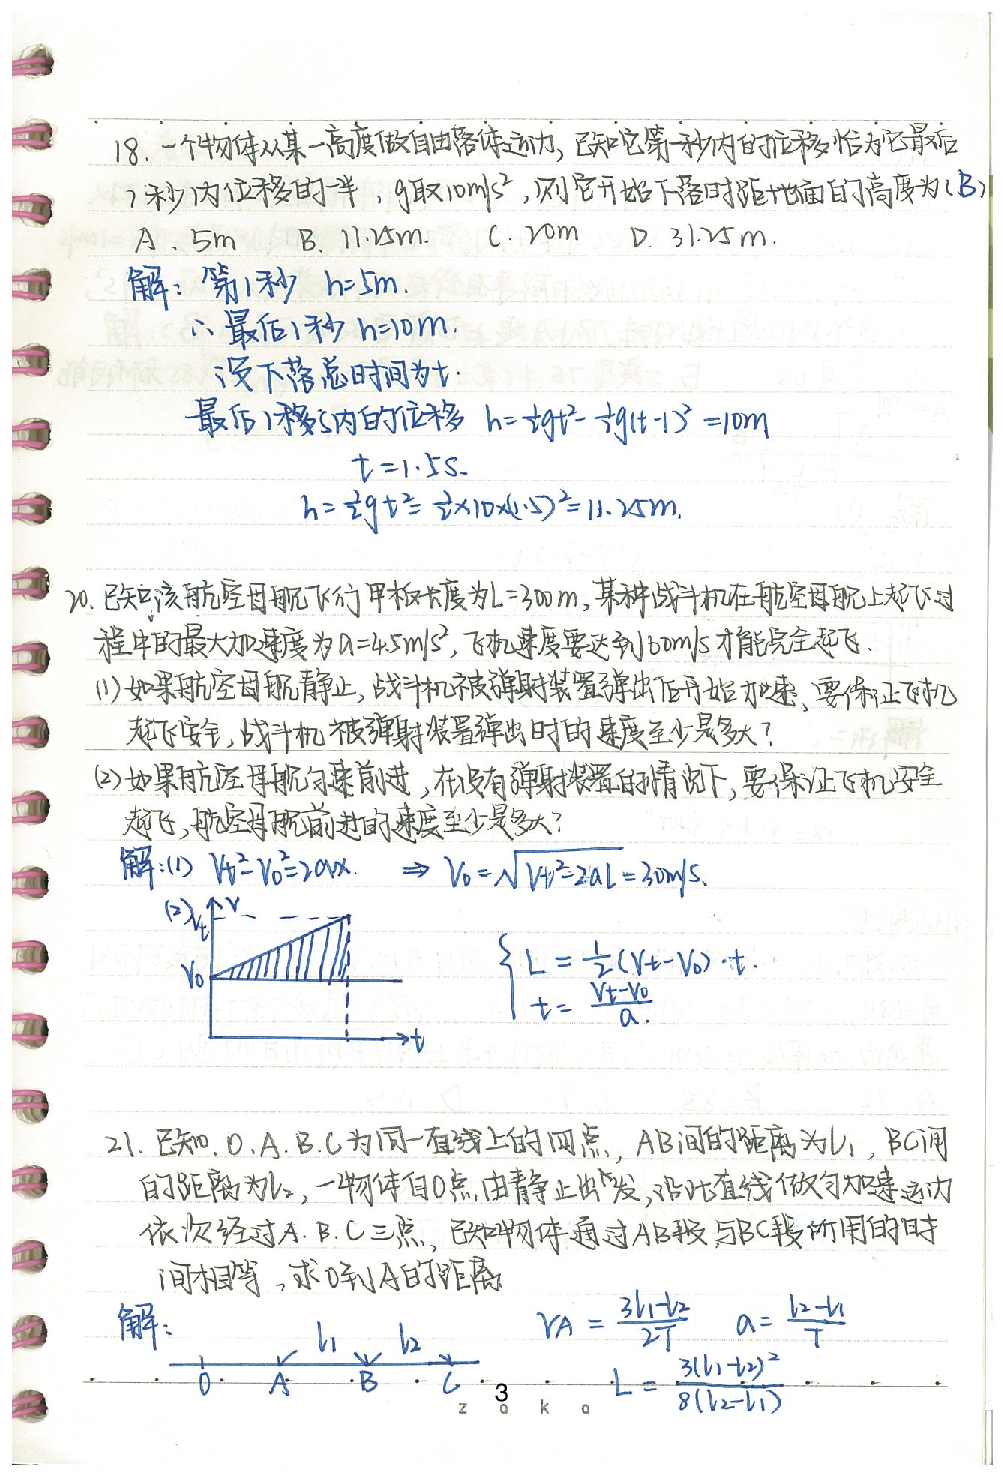 18. 一个物体从某一高度做自由落体运动, 已知它第一秒内的位移恰为它最后
1秒内位移的一半, g取10m/s², 则它开始下落时距地面的高度为(B)
A. 5m B. 11.25m. C. 20m D. 31.25m.
解: 第1秒 h=5m.
∴最后1秒 h=10m.
设下落总时间为t.
最后1秒内的位移 h=½gt²-½g(t-1)²=10m
t=1.5s.
h=½gt²=½×10×(1.5)²=11.25m.
20. 已知该航空母舰飞行甲板长度为L=300m, 某种战斗机在航空母舰上起飞过
程中的最大加速度为a=4.5m/s², 飞机速度要达到60m/s才能完全起飞.
(1) 如果航空母舰静止, 战斗机被弹射装置弹出后开始加速, 要保证飞机
起飞安全, 战斗机被弹射装置弹出时的速度至少是多大?
(2) 如果航空母舰匀速前进, 在没有弹射装置的情况下, 要保证飞机安全
起飞, 航空母舰前进的速度至少是多大?
解:(1) Vt²-V0²=2ax. ⇒ V0=√Vt²-2aL=30m/s.
(2) V
Vt
V0
t
{ L=½(Vt-V0)·t.
t=(Vt-V0)/a.
21. 已知O.A.B.C为同一直线上的四点, AB间的距离为l1, BC间
的距离为l2, 一物体自O点由静止出发, 沿此直线做匀加速运动
依次经过A.B.C三点, 已知物体通过AB段与BC段所用的时
间相等, 求O到A的距离
解: l1 l2
O A B C
VA=(3l1-l2)/2T a=(l2-l1)/T
L=3(l1-l2)²/8(l2-l1)
3
zaka